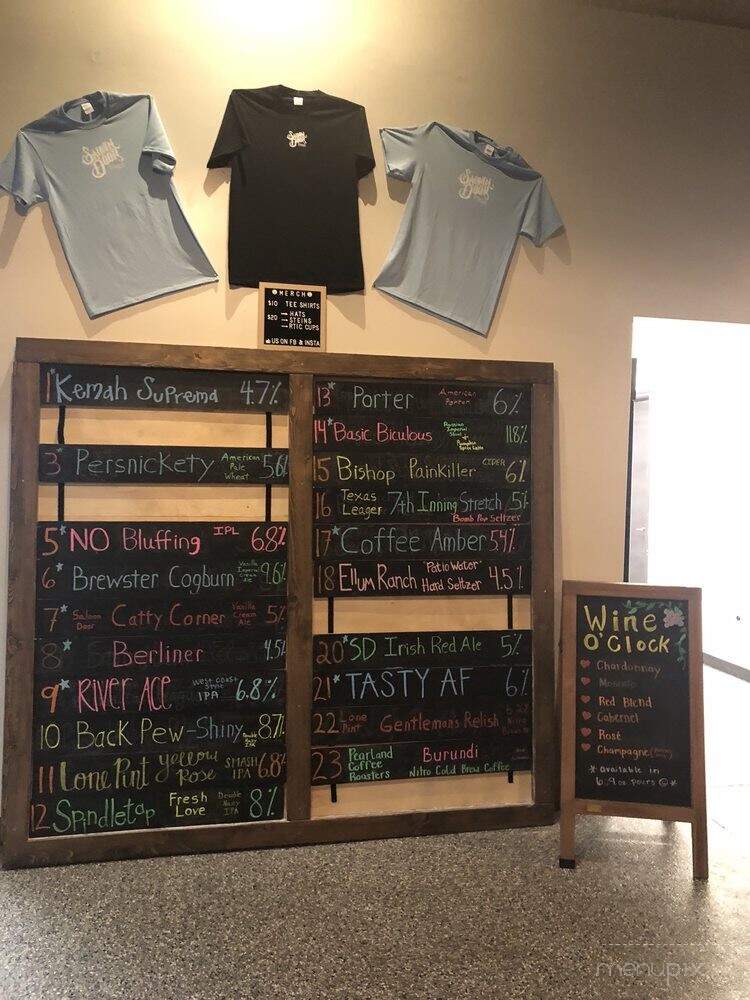 Saloon Door
Saloon Door
Saloon Door
MERCH
$10 TEE SHIRTS
$20 → HATS
→ STEINS
→ RTIC CUPS
US ON FB & INSTA
1* Kemah Suprema 4.7%
3* Persnickety American Pale Wheat 5.6%
5* NO Bluffing IPL 6.8%
6* Brewster Cogburn Vanilla Imperial Cream Ale 9.6%
7* Saloon Door Catty Corner Vanilla Cream Ale 5%
8* Berliner 4.5%
9* RIVER ACE West Coast Style IPA 6.8%
10 Back Pew-Shiny 8.7%
11 Lone Pint Yellow Rose SMASH IPA 6.8%
12 Spindletap Fresh Love Double Hazy IPA 8%
13* Porter American Porter 6%
14* Basic Biculous Russian Imperial Stout + Pumpkin Spice Latte 11.8%
15 Bishop Painkiller CIDER 6%
16 Texas Leager 7th Inning Stretch 5%
Bomb Pop Seltzer
17* Coffee Amber 5.4%
18 Ellum Ranch 'Patio Water' Hard Seltzer 4.5%
20* SD Irish Red Ale 5%
21* TASTY AF 6%
22 Lone Pint Gentleman's Relish
23 Pearland Coffee Roasters Burundi
Nitro Cold Brew Coffee
Wine O'Clock
Chardonnay
Moscato
Red Blend
Cabernet
Rosé
Champagne
* available in
6, 9 oz pours ☺ *
menupix